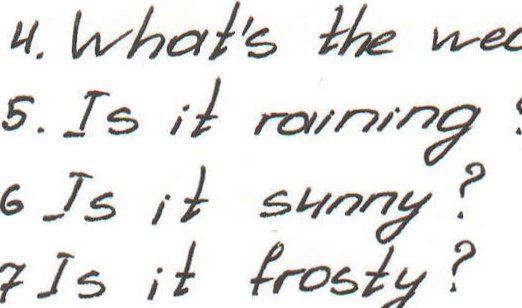 4. What's the
5. Is it raining
6 Is it sunny?
7 Is it frosty?